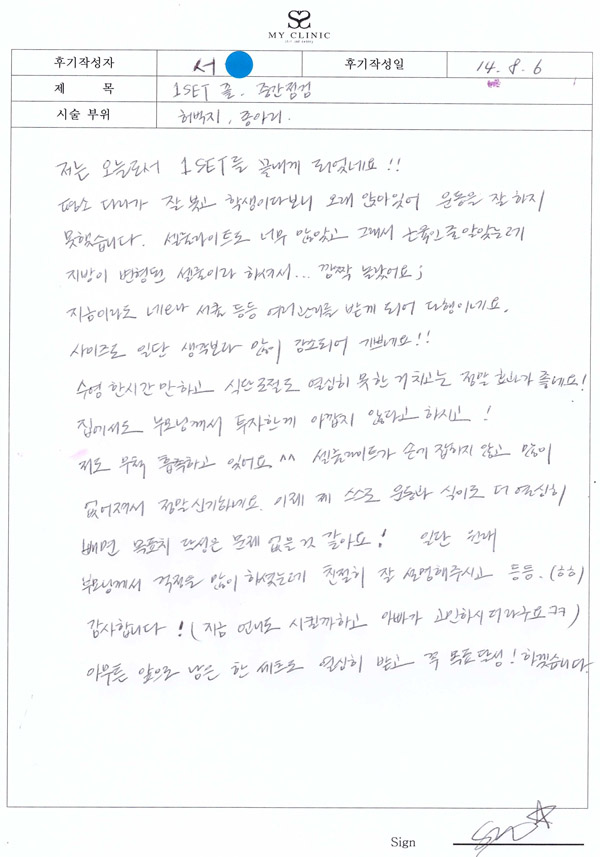 MY CLINIC
후기작성자 서 후기작성일 14. 8. 6
제 목 1SET 끝. 중간점검
시술 부위 허벅지, 종아리.
저는 오늘로서 1SET를 끝내게 되었네요!!
평소 다리가 잘 붓고 학생이다보니 오래 앉아있어 운동을 잘 하지
못했습니다. 셀룰라이트도 너무 많았고 그래서 근육인줄알았는데
지방이 변형된 셀룰이라 하셔서... 깜짝 놀랐어요;
지금이라도 네오나 서큘 등등 여러관리를 받게 되어 다행이네요.
사이즈도 일단 생각보다 많이 감소되어 기쁘네요!!
수영 한시간만하고 식단조절도 열심히 못한 거치고는 정말 효과가 좋네요!
집에서도 부모님께서 투자한게 아깝지 않다고 하시고!
저도 무척 흡족하고 있어요^^ 셀룰라이트가 손에 잡히지 않고 많이
없어져서 정말신기하네요. 이제 제 스스로 운동과 식이도 더 열심히
빼면 목표치 달성은 문제 없을것 같아요! 일단 원래
부모님께서 걱정을 많이 하셨는데 친절히 잘 설명해주시고 등등.(ㅎㅎ)
감사합니다! (지금 언니도 시킬까하고 아빠가 고민하시더라구요ㅋㅋ)
아무튼 앞으로 남은 한 세트도 열심히 받고 꼭 목표달성! 하겠습니다
Sign